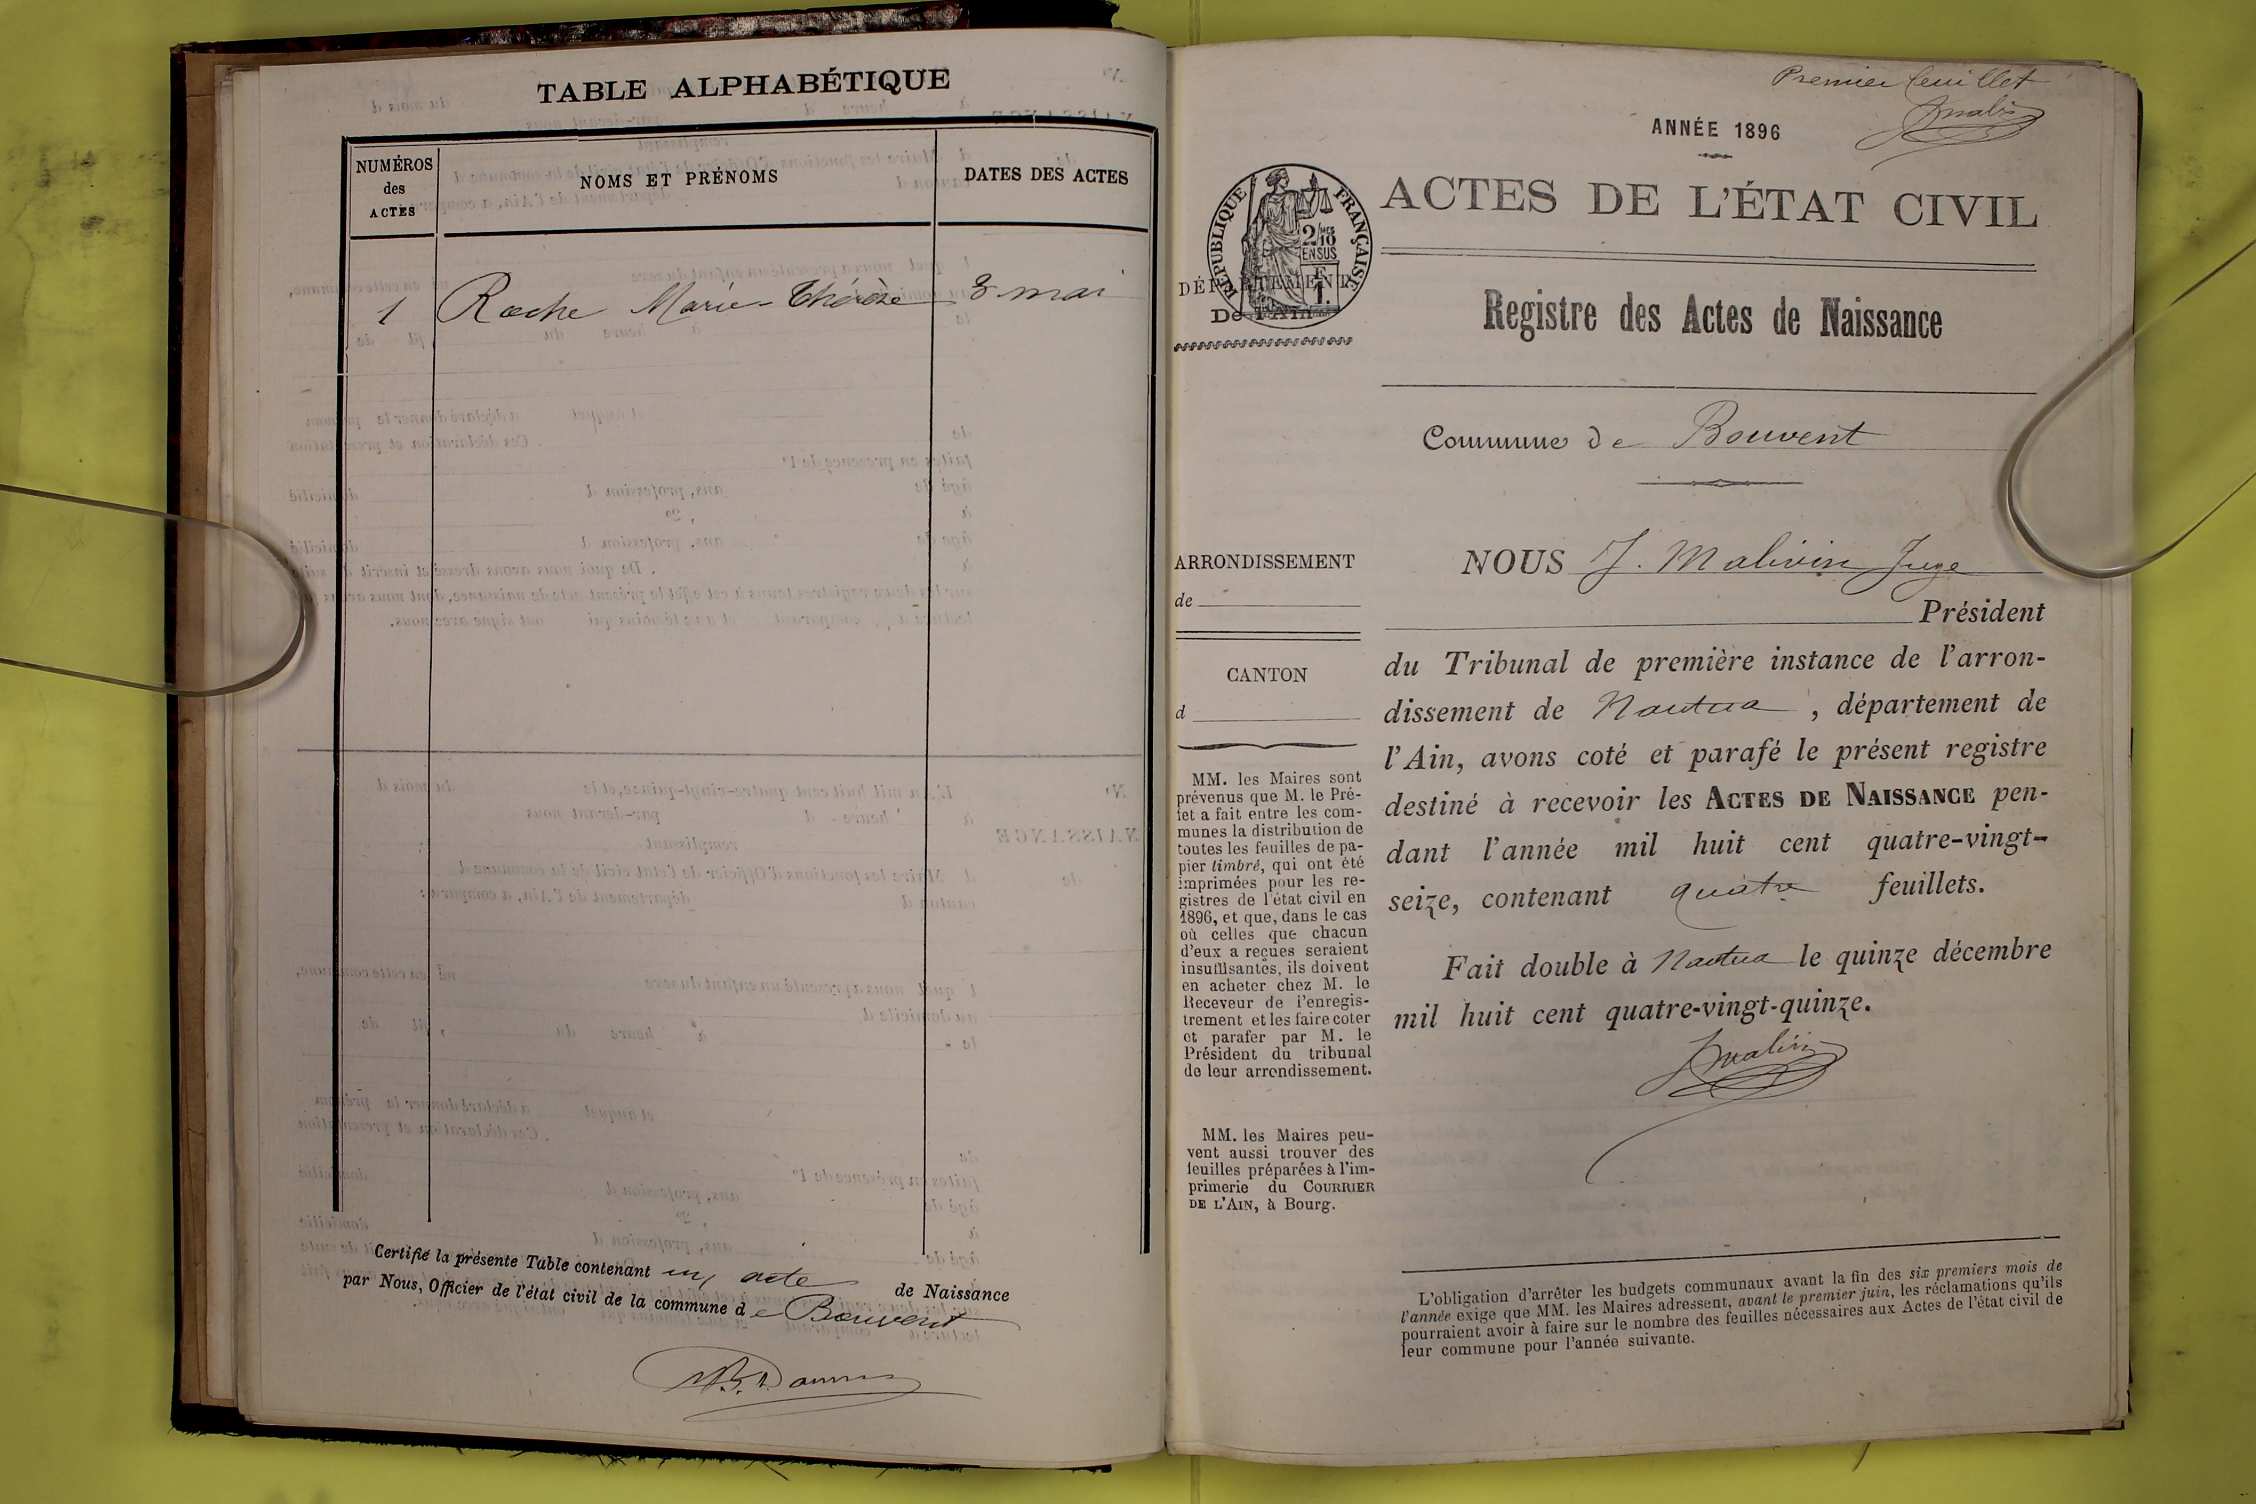 TABLE ALPHABÉTIQUE
NUMÉROS
des
ACTES
NOMS ET PRÉNOMS
DATES DES ACTES
1 Roche Marie-Thérèse 8 mai
Certifié la présente Table contenant un acte de Naissance
par Nous, Officier de l'état civil de la commune de Bouvent
Premier feuillet
ANNÉE 1896
ACTES DE L'ÉTAT CIVIL
RÉPUBLIQUE FRANÇAISE
2/10
EN SUS
F
1.
DÉPARTEMENT
De l'Ain
Registre des Actes de Naissance
Commune de Bouvent
ARRONDISSEMENT
de
CANTON
d
MM. les Maires sont
prévenus que M. le Pré-
fet a fait entre les com-
munes la distribution de
toutes les feuilles de pa-
pier timbré, qui ont été
imprimées pour les re-
gistres de l'état civil en
1896, et que, dans le cas
où celles que chacun
d'eux a reçues seraient
insuffisantes, ils doivent
en acheter chez M. le
Receveur de l'enregis-
trement et les faire coter
et parafer par M. le
Président du tribunal
de leur arrondissement.
MM. les Maires peu-
vent aussi trouver des
feuilles préparées à l'im-
primerie du COURRIER
DE L'AIN, à Bourg.
NOUS J. Malivin Juge
Président
du Tribunal de première instance de l'arron-
dissement de Nantua, département de
l'Ain, avons coté et parafé le présent registre
destiné à recevoir les ACTES DE NAISSANCE pen-
dant l'année mil huit cent quatre-vingt-
seize, contenant quatre feuillets.
Fait double à Nantua le quinze décembre
mil huit cent quatre-vingt-quinze.
L'obligation d'arrêter les budgets communaux avant la fin des six premiers mois de
l'année exige que MM. les Maires adressent, avant le premier juin, les réclamations qu'ils
pourraient avoir à faire sur le nombre des feuilles nécessaires aux Actes de l'état civil de
leur commune pour l'année suivante.